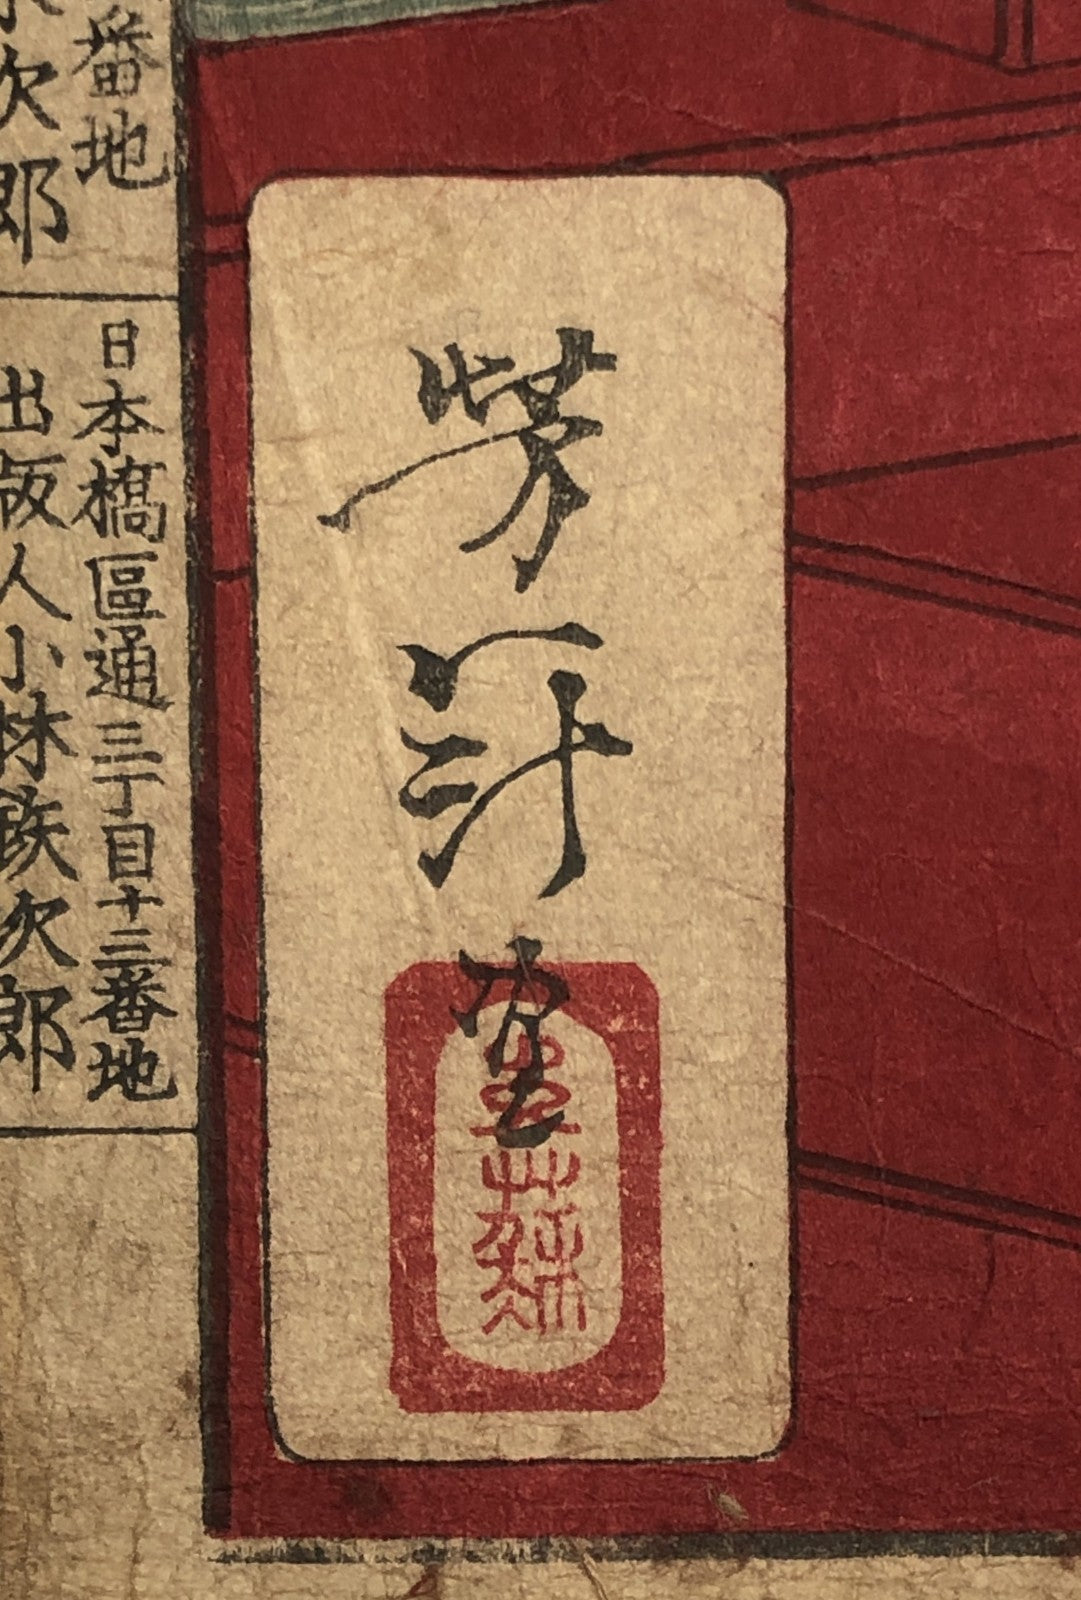 芳年画
番地
次郎
日本橋區通三丁目十三番地
出版人小林鉄次郎